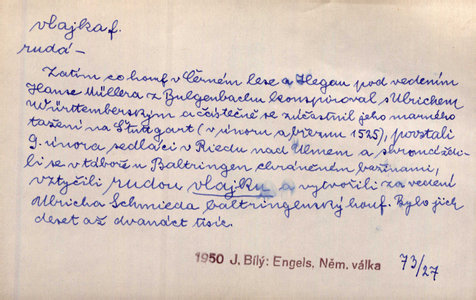 vlajka f.
rudá –
Zatím co houf v Černém lese a Hegau pod vedením
Hanse Müllera z Bulgenbachu konspiroval s Ulrichem
Württemberským a částečně se zúčastnil jeho marného
tažení na Štuttgart (v únoru a březnu 1525), povstali
9. února sedláci v Riedu nad Ulmem a shromáždi-
li se v táboře u Baltringen chráněném bažinami,
vztyčili rudou vlajku a vytvořili za vedení
Ulricha Schmieda baltringenský houf. Bylo jich
deset až dvanáct tisíc.
1950 J. Bílý: Engels, Něm. válka 73/27